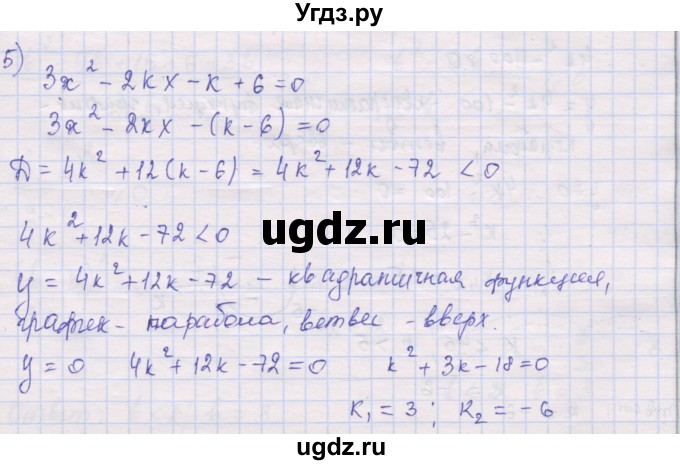 Угдз.ру
5)
3x² - 2kx - k + 6 = 0
3x² - 2kx - (k - 6) = 0
Д = 4k² + 12(k - 6) = 4k² + 12k - 72 < 0
4k² + 12k - 72 < 0
ugdz.ru
y = 4k² + 12k - 72 - квадратичная функция,
график - парабола, ветви - вверх.
y = 0 4k² + 12k - 72 = 0 k² + 3k - 18 = 0
k₁ = 3; k₂ = -6
ugdz.ru